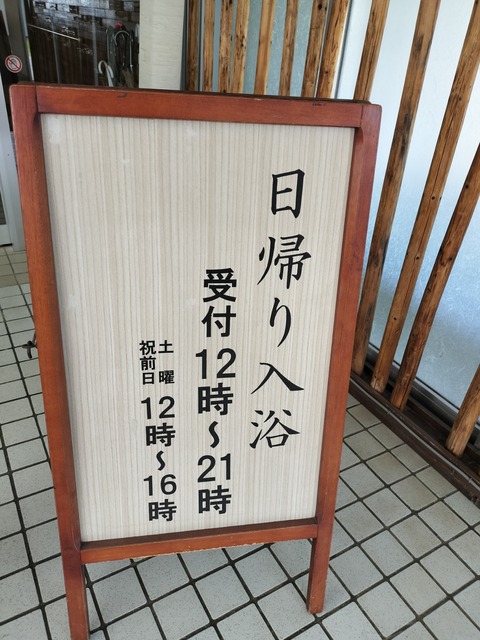 日帰り入浴
受付12時〜21時
土曜
祝前日
12時〜16時